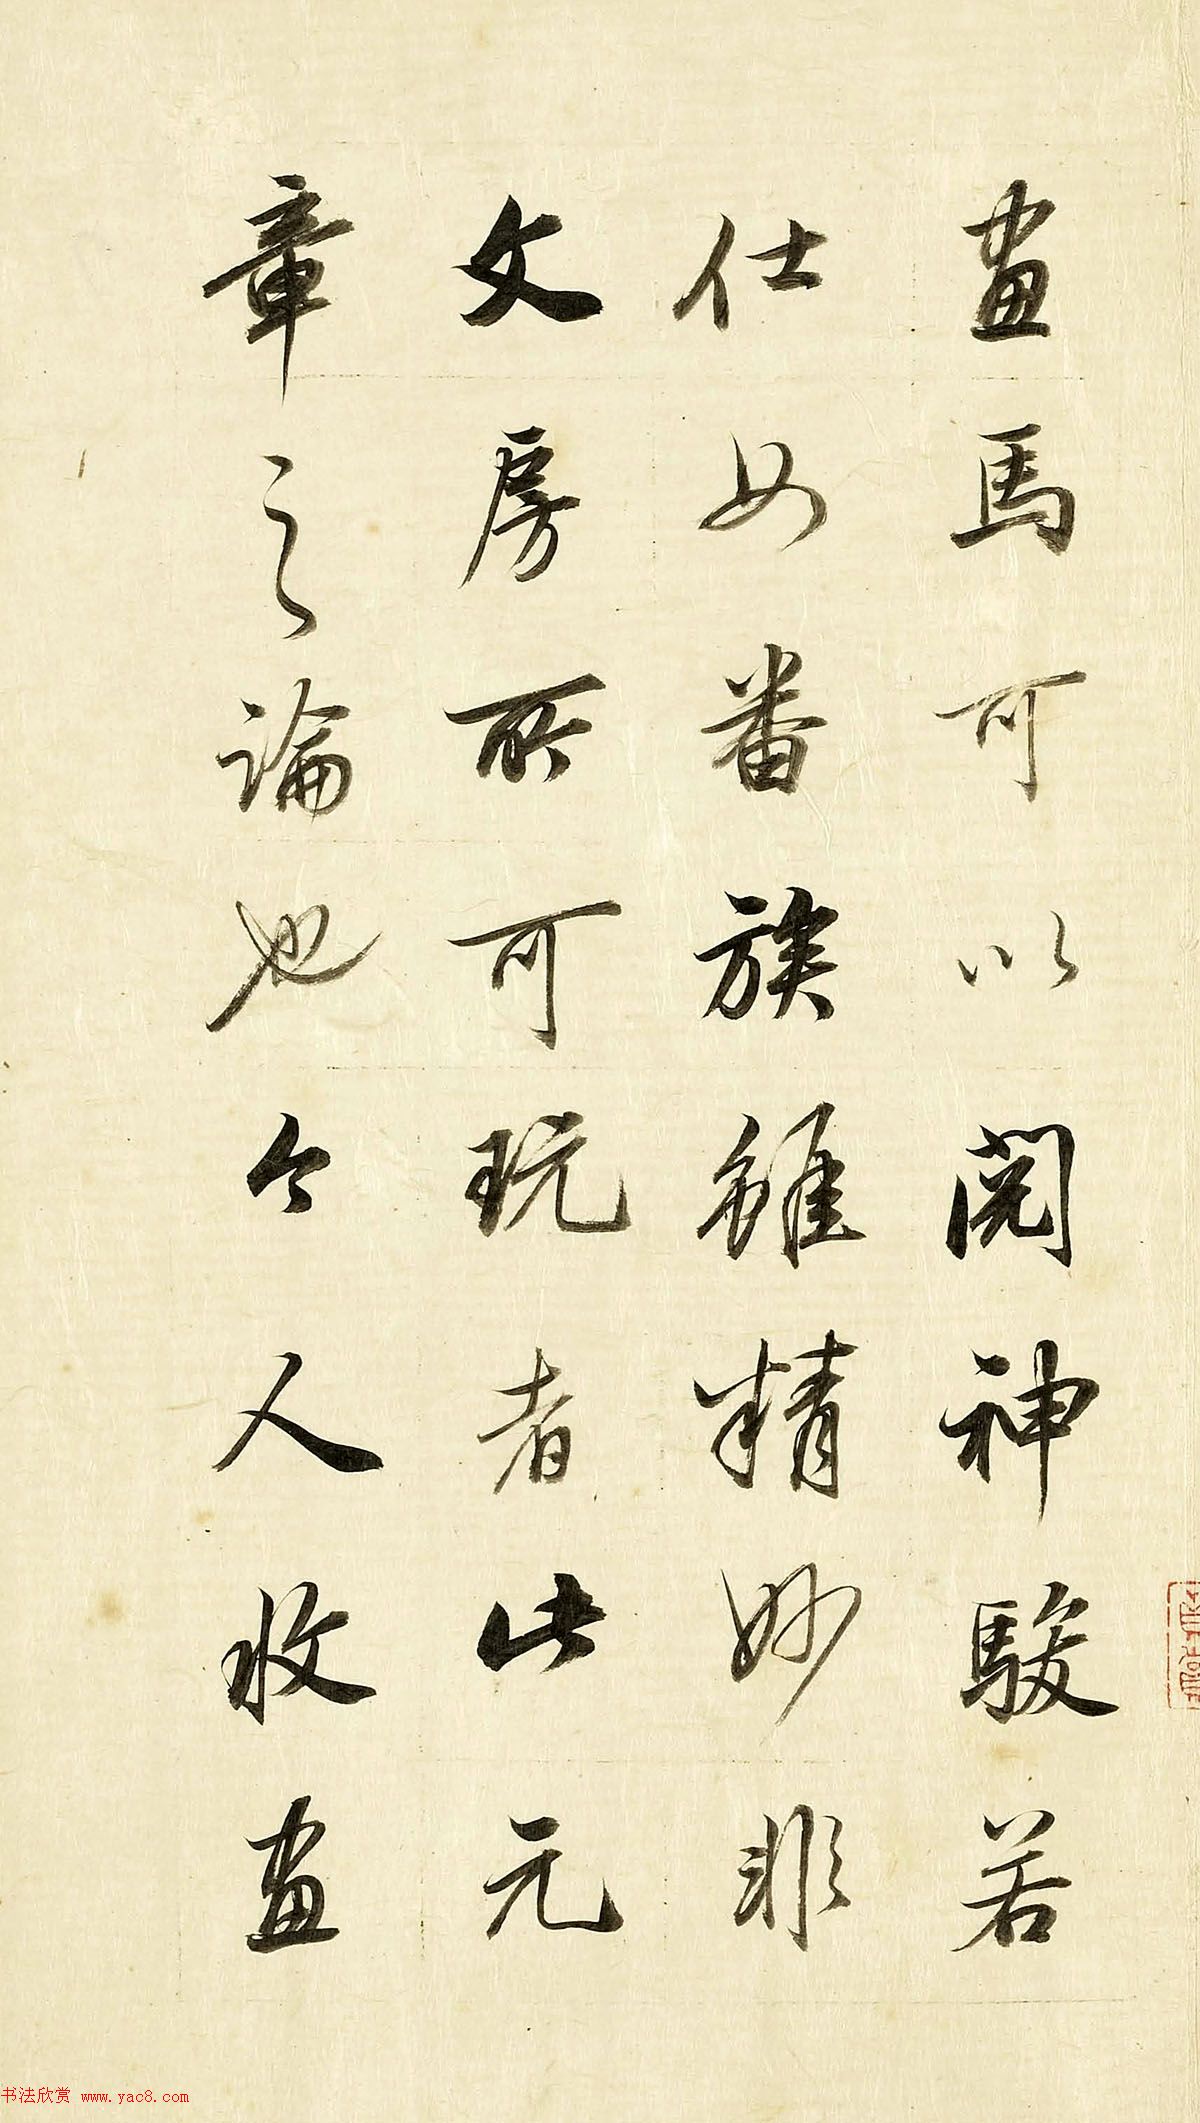 畫馬可以閱神駿若
仕女番族雖精妙非
文房所可玩者此元
章之論也今人收畫
书法欣赏 www.yac8.com